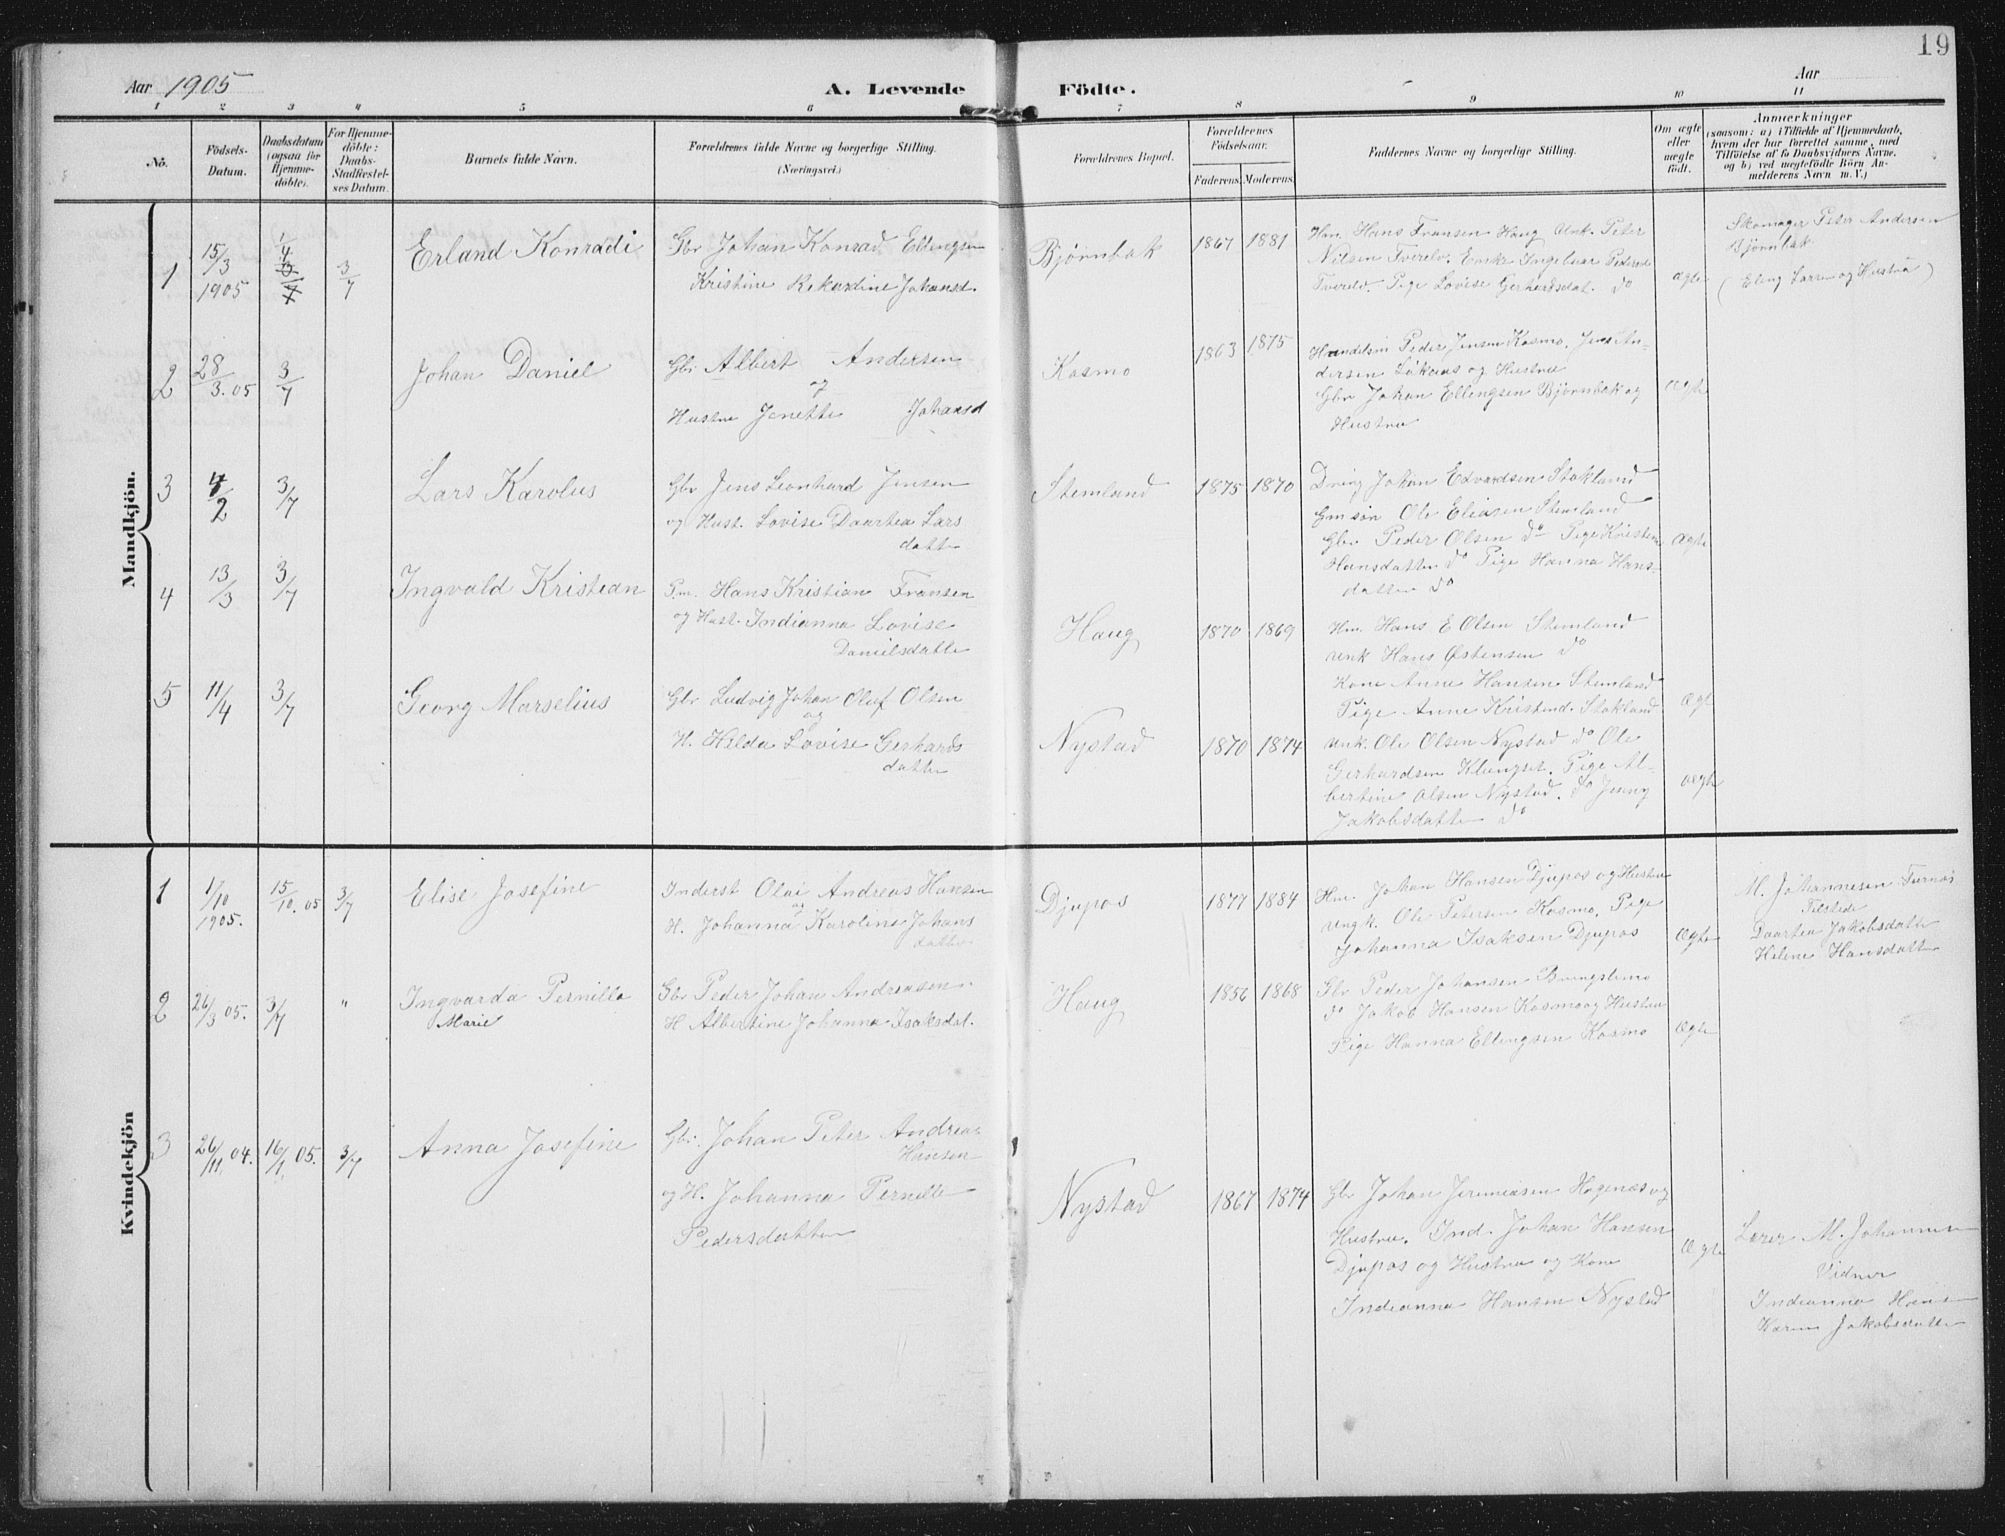 19
Aar 1905
A. Levende Födte.
Aar
1 2 3 4 5 6 7 8 9 10 11
No.
Födsels-
Datum.
Daabsdatum
(ogsaa for
Hjemme-
döbte).
For Hjemme-
döbte:
Daabs-
Stadfæstel-
ses Datum.
Barnets fulde Navn.
Forældrenes fulde Navne og borgerlige Stilling.
(Næringsvei.)
Forældrenes Bopæl.
Forældrenes
Födselsaar.
Faderens. Moderens.
Faddernes Navne og borgerlige Stilling.
Om ægte
eller
uægte
födt.
Anmærkninger
(saasom: a) i Tilfælde af Hjemmedaab,
hvem der har forrettet samme, med
Tilföielse af to Daabsvidners Navne,
og b) ved uægtefödte Börn An-
melderens Navn m. V.)
Mandkjön.
1
15/3
1905
1/4
3/7
Erland Konradi
Gbr Johan Konrad Ellingsen
Kristine Rekardine Johansd.
Bjørnbak
1867 1881
Hm. Hans Fransen Haug Unk. Peter
Nilsen Tverelv. Enke Ingeborg Pedersd
Tverelv. Pige Lovise Gerhardsdat. do
ægte
Skomager Peter Andersen
Bjørnbak
(Eling Larsen og Hustru)
2
28/3. 05
3/7
Johan Daniel
Gbr Albert Andersen
og
Hustru Jenette Johansd
Kosmo
1863 1875
Handelsm Peder Jensen Kosmo, Jens An-
dersen Løkaas og Hustru
Gbr Johan Ellingsen Bjørnbak og
Hustru
ægte
3
4/2
3/7
Lars Karolus
Gbr Jens Leonhard Jensen
og Hust. Lovise Daartea Lars
datter
Stemland
1875 1870
Dreng Johan Edvardsen Stokland
Gmsøn Ole Eliasen Stemland
Gbr Peder Olsen do Pige Kristine
Hansdatter do Pige Hanna Hans-
datter do
ægte
4
13/3
3/7
Ingvald Kristian
Pm. Hans Kristian Fransen
og Hust. Indianna Lovise
Danielsdatter
Haug
1870 1869
Hm. Hans E Olsen Stemland
unk Hans Østensen do
Kone Anne Hansen Stemland
Pige Anne Kristensd. Stokland
Ægt
5
11/4
3/7
Georg Marselius
Gbr Ludvig Johan Oluf Olsen
og
H. Helda Lovise Gerhards
datter
Nystad
1870 1874
unk. Ole Olsen Nystad do Ole
Gerhardsen Klungset. Pige Al-
bertine Olsen Nystad. do Jenny
Jakobsdatter do
ægte
Kvindekjön
1
1/10
1905.
15/10. 05
3/7
Elise Josefine
Inderst Olai Andreas Hansen
og
H. Johanna Karoline Johans
datter
Djupos
1877 1884
Hm. Johan Hansen Djupos og Hustru
Ungk. Ole Petersen Kosmo, Pige
Johanna Isaksen Djupos
Ægte
M. Johannesen Furnes
Tilstede
Daartea Jakobsdatter
Helene Hansdatter
2
26/3 05.
3/7
"
Ingvarda Pernilla
Marie
Gbr Peder Johan Andreasen
H Albertine Johanna Isaksdat.
Haug
1856 1868
Gbr Peder Johansen Bringslimo
do Jakob Hansen Kosmo og Hustru
Pige Hanna Ellingsen Kosmo
Ægte
3
26/11. 04.
16/1. 05.
3/7
Anna Josefine
Gbr. Johan Peter Andreas
Hansen
og H. Johanna Pernille
Pedersdatter
Nystad
1867 1874
Gbr Johan Jeremiasen Hagenes og
Hustru. Ind. Johan Hansen
Djupos og Hustru og Kone
Indianna Hansen Nystad
Ægte
Lærer M. Johannesen
Vidner
Indianna Hansen
Karen Jakobsdatter